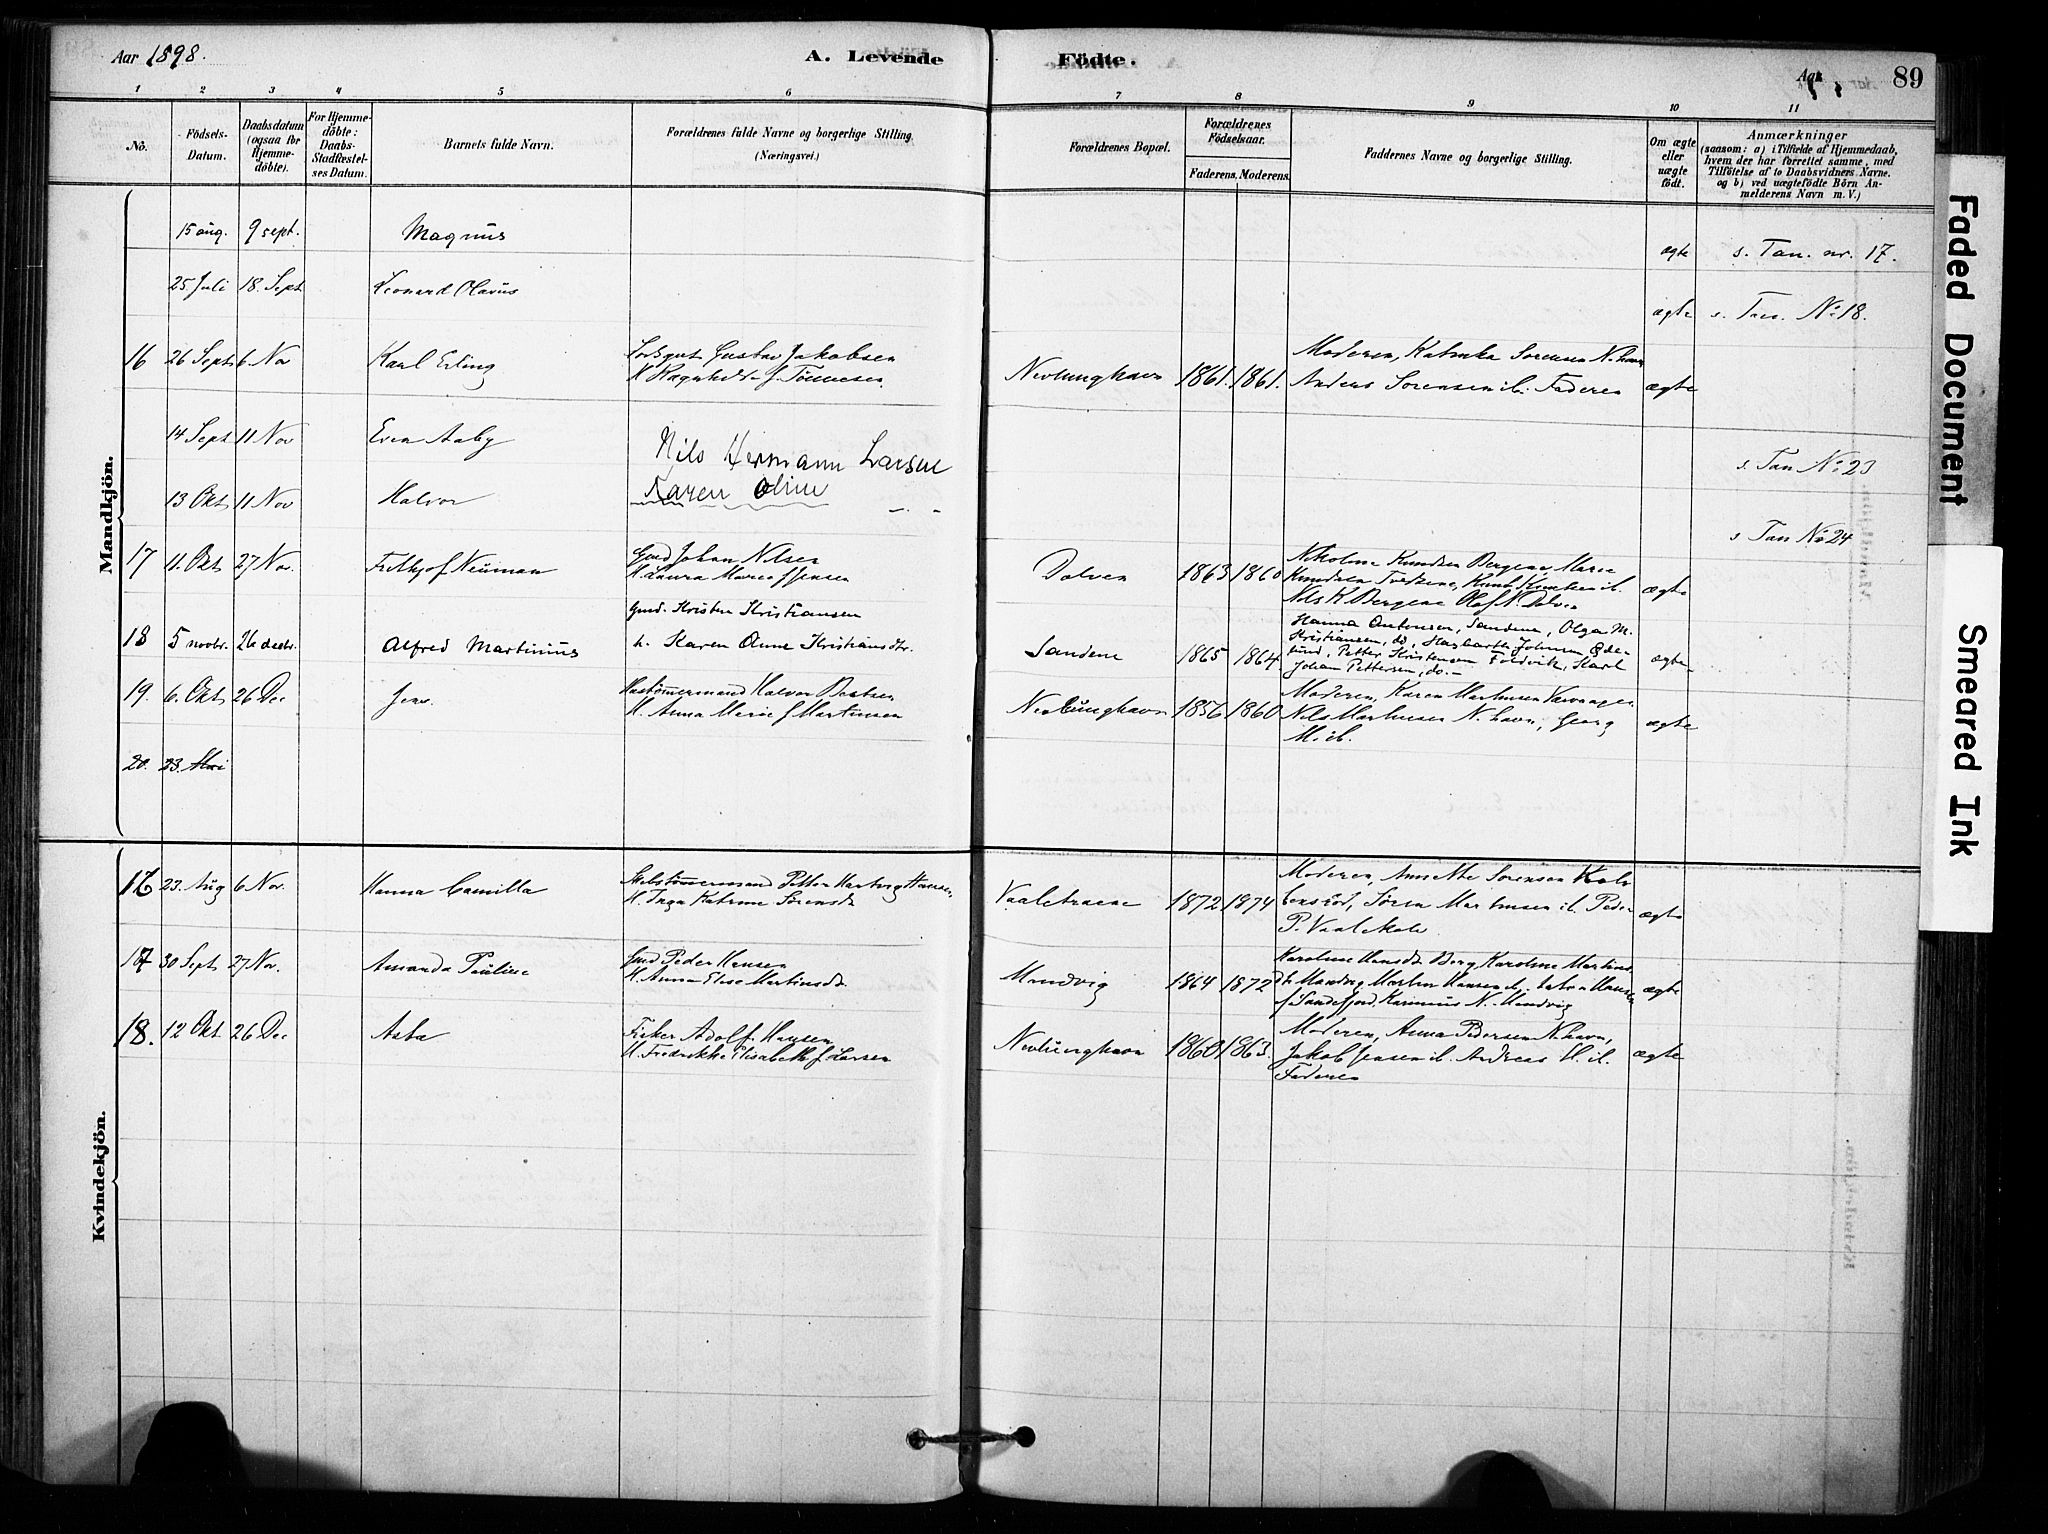 Aar 1898.
A. Levende
Födte.
Aar
89
1 2 3 4 5 6 7 8 9 10 11
No.
Födsels-Datum.
Daabsdatum (ogsaa for Hjemme-döbte).
For Hjemme-döbte: Daabs-Stadfæstel-ses Datum.
Barnets fulde Navn.
Forældrenes fulde Navne og borgerlige Stilling.
(Næringsvei.)
Forældrenes Bopæl.
Forældrenes Födselsaar.
Faderens. Moderens.
Faddernes Navne og borgerlige Stilling.
Om ægte eller uægte födt.
Anmærkninger
(saasom: a) i Tilfælde af Hjemmedaab,
hvem der har forrettet samme, med
Tilföielse af to Daabsvidners Navne.
og b) ved uægtefödte Börn An-
melderens Navn m. V.)
Mandkjön.
15 aug. 9 sept. Magnus ægte s. Tan. nr. 17.
25 Juli 18. Sept Leonard Olavus ægte s. Tan. No 18.
16 26 Sept 6 Nov Karl Erling
Lodsgut Gustav Jakobsen
H. Ragnhilde f. Tönnesen
Nevlunghavn 1861. 1861.
Moderen, Katinka Sorensen N.havn
Anders Sorensen ib. Faderen
ægte
14 Sept 11 Nov Even Aaby s. Tan No 23
Nils Hermann Larsen
Karen Oline
13 Okt 11 Nov Halvor s Tan No 24
17 11. Okt 27 Nov. Frithjof Neuman
Gmd Johan Nilsen
H. Laura Marie f Jensen
Dolven 1863 1860
Nikoline Knudsen Bergene, Marie
Knudsen Tvedtene, Knut Knutsen ib.
Nils K Bergene Olaf N. Dolven
ægte
18 5 novbr. 26 decbr. Alfred Martinius
Gmd. Kristen Kristiansen
h. Karen Anne Kristiansdtr.
Sandene 1865 1864
Hanna Antonsen, Sandene, Olga M.
Kristiansen, do, Hagbarth Johnsen Öde-
lund, Petter Kristensen Foldvik, Karl
Johan Pettersen, do.-
ægte
19. 6. Okt 26 Dec Jens.
Hustömermand Halvor Bentsen
H. Anna Marie f Martinsen
Nevlunghavn 1856 1860
Moderen, Karen Mathisen Varvaagen
Nils Mathisen N.havn, Georg
M. ib.
ægte
20. 23. Mai
Kvindekjön.
16 23. Aug 6 Nov. Hanna Camilla
Skibstömermand Petter Harberg Hansen,
H. Inga Katrine Sörensdt
Vaaletraene 1872 1874
Moderen, Annette Sorensen Kalv
Sören Mathisen ib. Peder
P. Vaalekale
ægte
17 30 Sept 27 Nov. Amanda Pauline
Gmd Peder Hansen
H. Anna Elise Martinsdt
Mundvig 1864 1872
Karoline Hansdt Berg Karoline Martins
dt Manvig Martin Hansen ib. Hansen
f Sandefjord, Karinius N. Mundvig
ægte
18. 12 Okt 26 Dec Asta
Fisker Adolf Hansen
H. Fredrikke Elisabeth f Larsen
Nevlunghavn 1860 1863.
Moderen, Anna Pedersen N.havn,
Jakob Jensen ib. Andreas H. ib.
Faderen
ægte
Faded Document
Smeared Ink